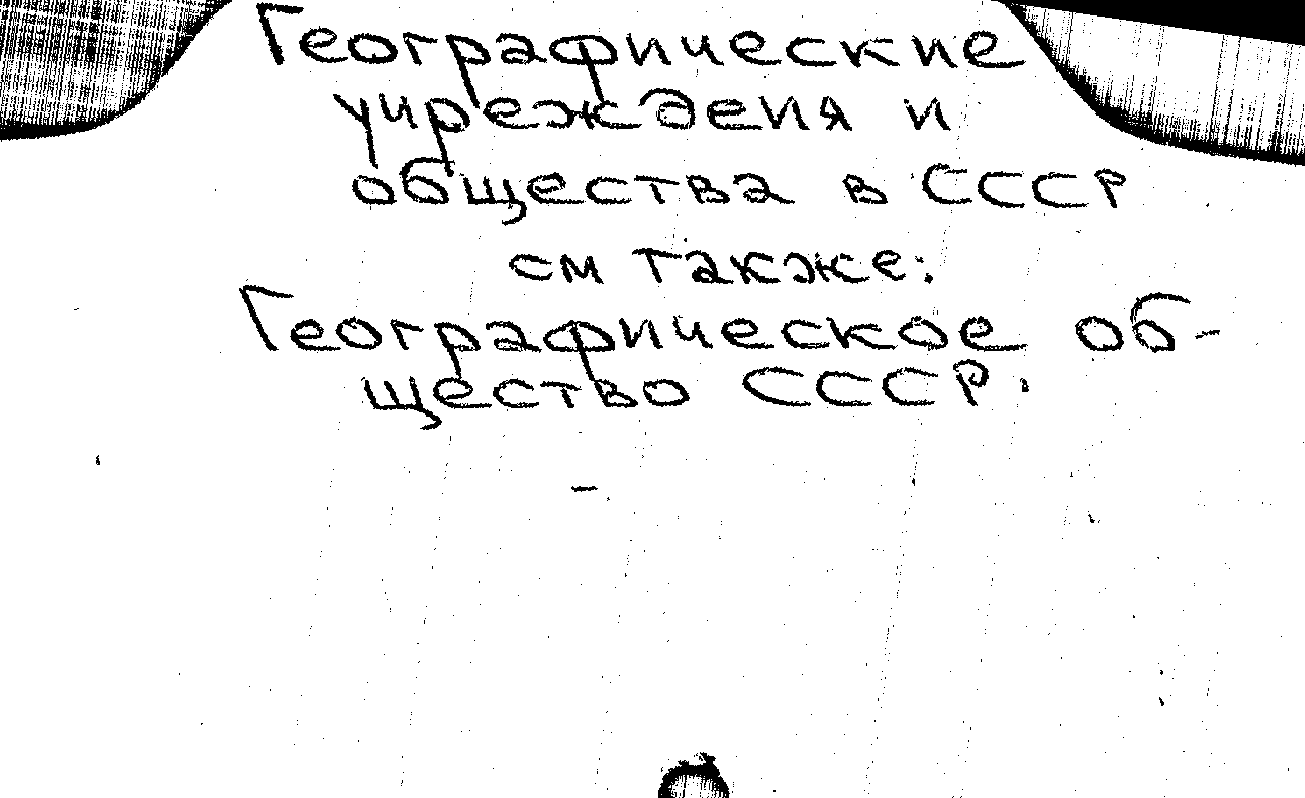 Географические
учреждения и
общества в СССР
см также:
Географическое об-
щество СССР.